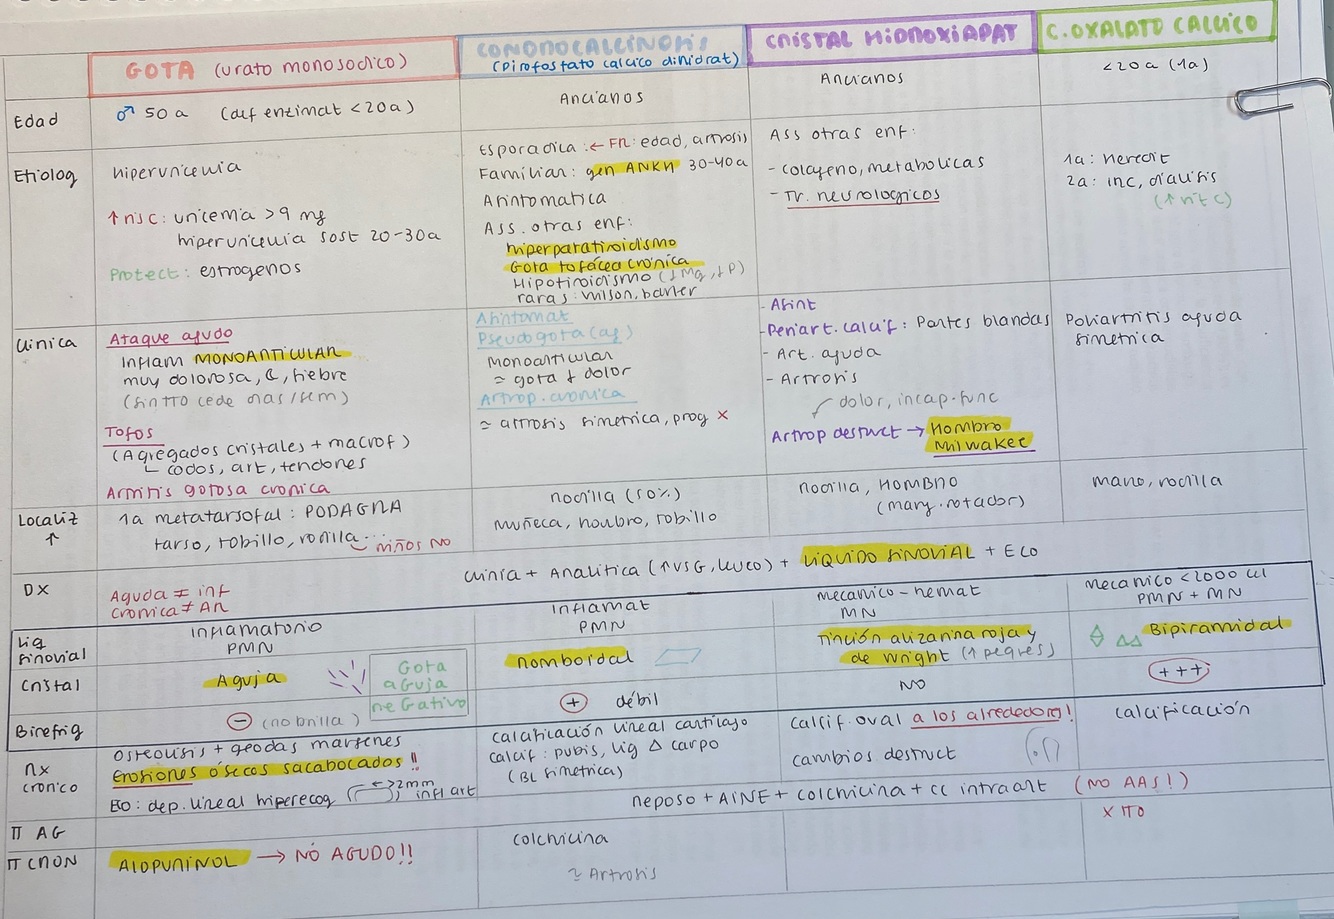 GOTA (urato monosodico)
CONDROCALCINOSIS
(pirofostato calcico dihidrat)
CRISTAL HIDROXIAPAT
C. OXALATO CALCICO
Edad
♂ 50 a (def enzimat <20a)
Ancianos
Ancianos
<20a (1a)
Etiolog
hiperuricemia
↑ risc: uricemia > 9 mg
hiperuricemia sost 20-30a
Protect: estrogenos
Esporadica: ← FR: edad, artrosis
Familiar: gen ANKH 30-40a
Asintomatica
Ass. otras enf:
hiperparatiroidismo
Gota tofácea crónica
Hipotiroidismo (↓Mg, ↓P)
raras: wilson, barter
Ass otras enf:
- colageno, metabolicas
- Tr. neurologicos
1a: heredit
2a: inc, dialisis
(↑ vit C)
Clinica
Ataque agudo
Inflam MONOARTICULAR
muy dolorosa, ☾, fiebre
(sin TTO cede dias/sem)
Tofos
(Agregados cristales + macrof)
codos, art, tendones
Artritis gotosa cronica
Asintomat
Pseudogota (ag)
Monoarticular
≈ gota ↓ dolor
Artrop. cronica
≃ artrosis simetrica, prog ×
- Asint
- Periart. calcif: Partes blandas
- Art. aguda
- Artrosis
dolor, incap. func
Artrop destruct → Hombro
Milwakee
Poliartritis aguda
simetrica
Localiz
↑
1a metatarsofal: PODAGRA
tarso, tobillo, rodilla... niños NO
rodilla (50%)
muñeca, hombro, tobillo
rodilla, HOMBRO
(mang. rotador)
mano, rodilla
DX
Aguda ≠ inf
Cronica ≠ AR
clinia + Analitica (↑VSG, leuco) + LIQUIDO SINOVIAL + ECO
Liq
sinovial
Inflamatorio
PMN
Inflamat
PMN
mecanico - hemat
MN
mecanico < 2000 cel
PMN + MN
Cristal
Aguja
Gota
aGuja
neGativo
rombordal
Tinción alizarina roja y
de Wright (↑ peqres)
Bipiramidal
Birefrig
- (no brilla)
+ débil
NO
+++
Rx
cronico
osteolisis + geodas margenes
erosiones óseos sacabocados!!
ECO: dep. lineal hiperecog
>2mm
infl art
calcificación lineal cartilago
calcif: pubis, lig Δ carpo
(BL simetrica)
calcif. oval a los alrededores!
cambios destruct
calcificación
TT AG
reposo + AINE + colchicina + cc intraart (NO AAS!)
TT CRON
ALOPURINOL → NO AGUDO!!
colchicina
≃ Artrosis
× TTO